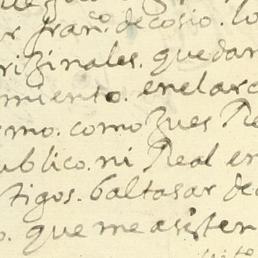 r franco. de cosio. lo
rizinales. quedan
miento. en el arc
smo. como Jues Re
ublico. ni Real en
tigos. baltasar de
o. que me asisten